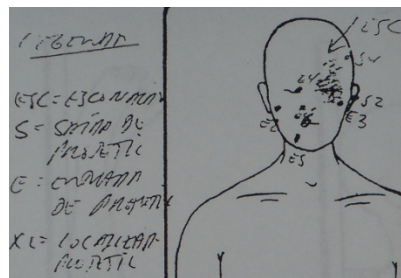 LEGENDA
ESC = ESCORIAÇÃO
S = SAÍDA DE
PROJETIL
E = ENTRADA
DE PROJETIL
XL = LOCALIZAR
PROJETIL
ESC
S4
E4
S2
E2
E3
E5